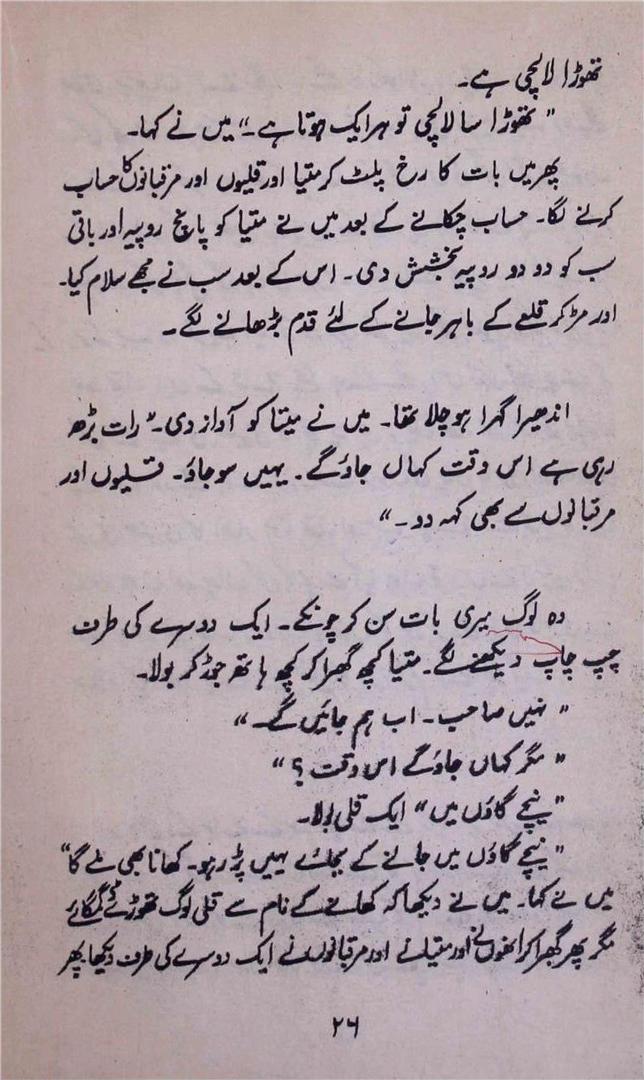 تھوڑا لالچی ہے۔
"تھوڑا سا لالچی تو ہر ایک ہوتا ہے۔" میں نے کہا۔
پھر میں بات کا رخ پلٹ کر متیا اور قلیوں اور مرقبانوں کا حساب
کرنے لگا۔ حساب چکانے کے بعد میں نے متیا کو پانچ روپیہ اور باقی
سب کو دو دو روپیہ بخشش دی۔ اس کے بعد سب نے مجھے سلام کیا۔
اور مڑ کر قلعے کے باہر جانے کے لئے قدم بڑھانے لگے۔
اندھیرا گہرا ہو چلا تھا۔ میں نے میتا کو آواز دی۔ "رات بڑھ
رہی ہے اس وقت کہاں جاؤ گے۔ یہیں سو جاؤ۔ قلیوں اور
مرقبانوں سے بھی کہہ دو۔"
وہ لوگ میری بات سن کر چونکے۔ ایک دوسرے کی طرف
چپ چاپ دیکھنے لگے۔ متیا کچھ گھبرا کر کچھ ہاتھ جوڑ کر بولا۔
"نہیں صاحب۔ اب ہم جائیں گے۔"
"مگر کہاں جاؤ گے اس وقت؟"
"نیچے گاؤں میں" ایک قلی بولا۔
"نیچے گاؤں میں جانے کے بجائے یہیں پڑ رہو۔ کھانا بھی ملے گا"
میں نے کہا۔ میں نے دیکھا کہ کھانے کے نام سے قلی لوگ تھوڑے ڈگمگائے
مگر پھر گھبرا کر انھوں نے اور متیا نے اور مرقبانوں نے ایک دوسرے کی طرف دیکھا پھر
۲۶